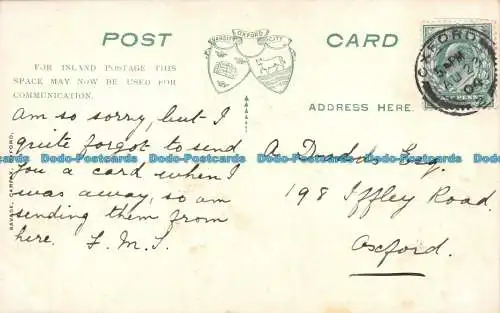 POST CARD
VARSITY OXFORD CITY
FOR INLAND POSTAGE THIS
SPACE MAY NOW BE USED FOR
COMMUNICATION.
ADDRESS HERE.
OXFORD
5 PM
PENNY
Am so sorry, but I
quite forgot to send
you a card when I
was away, so am
sending them from
here. F. M. S.
A Dodd Esq.
198 Iffley Road.
Oxford.
SAVAGE, CARFAX, OXFORD.
Dodo-Postcards Dodo-Postcards Dodo-Postcards Dodo-Postcards